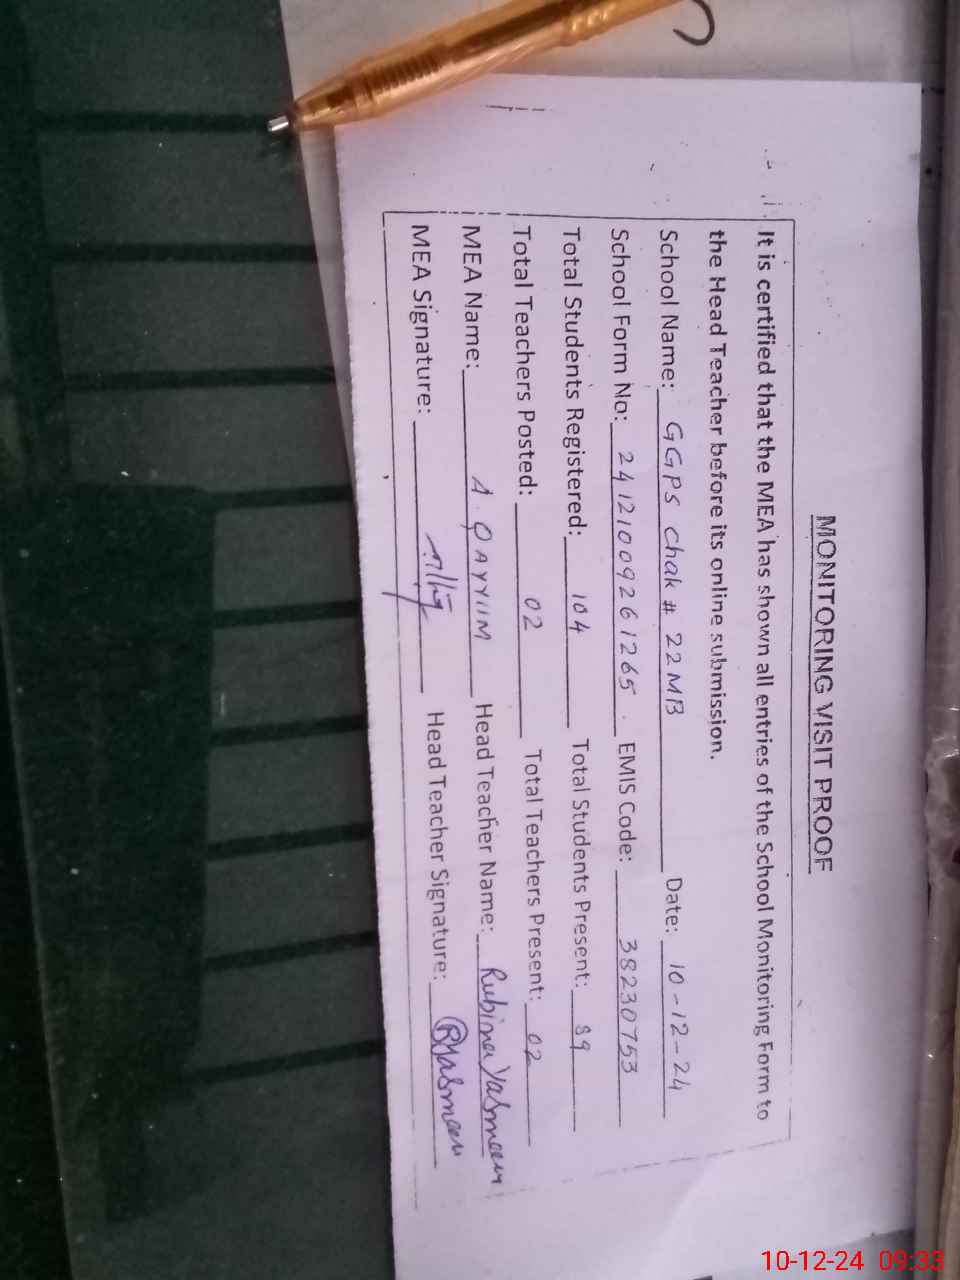 MONITORING VISIT PROOF
It is certified that the MEA has shown all entries of the School Monitoring Form to
the Head Teacher before its online submission.
School Name: GGPS Chak # 22MB Date: 10-12-24
School Form No: 24121009261265. EMIS Code: 38230753
Total Students Registered: 104 Total Students Present: 89
Total Teachers Posted: 02 Total Teachers Present: 02
MEA Name: A. QAYYUM Head Teacher Name: Rubina Yasmeen
MEA Signature: Head Teacher Signature: RYasmeen
10-12-24 09:33